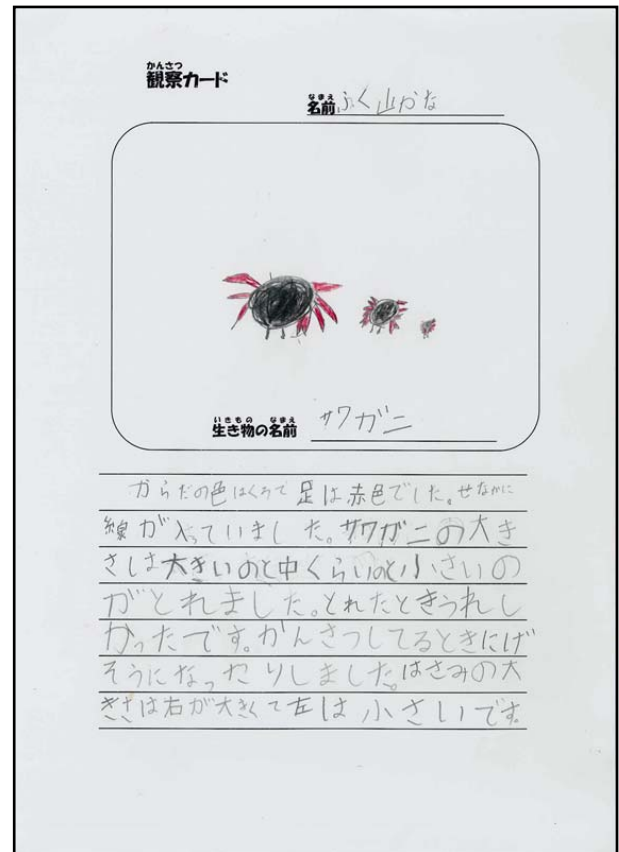 かんさつ
観察カード
なまえ
名前 ふく山かな
いきもの なまえ
生き物の名前 サワガニ
からだの色はくろで足は赤色でした。せなかに
線が入っていました。サワガニの大き
さは大きいのと中くらいのと小さいの
がとれました。とれたときうれし
かったです。かんさつしてるときにげ
そうになったりしました。はさみの大
きさは右が大きくて左は小さいです。